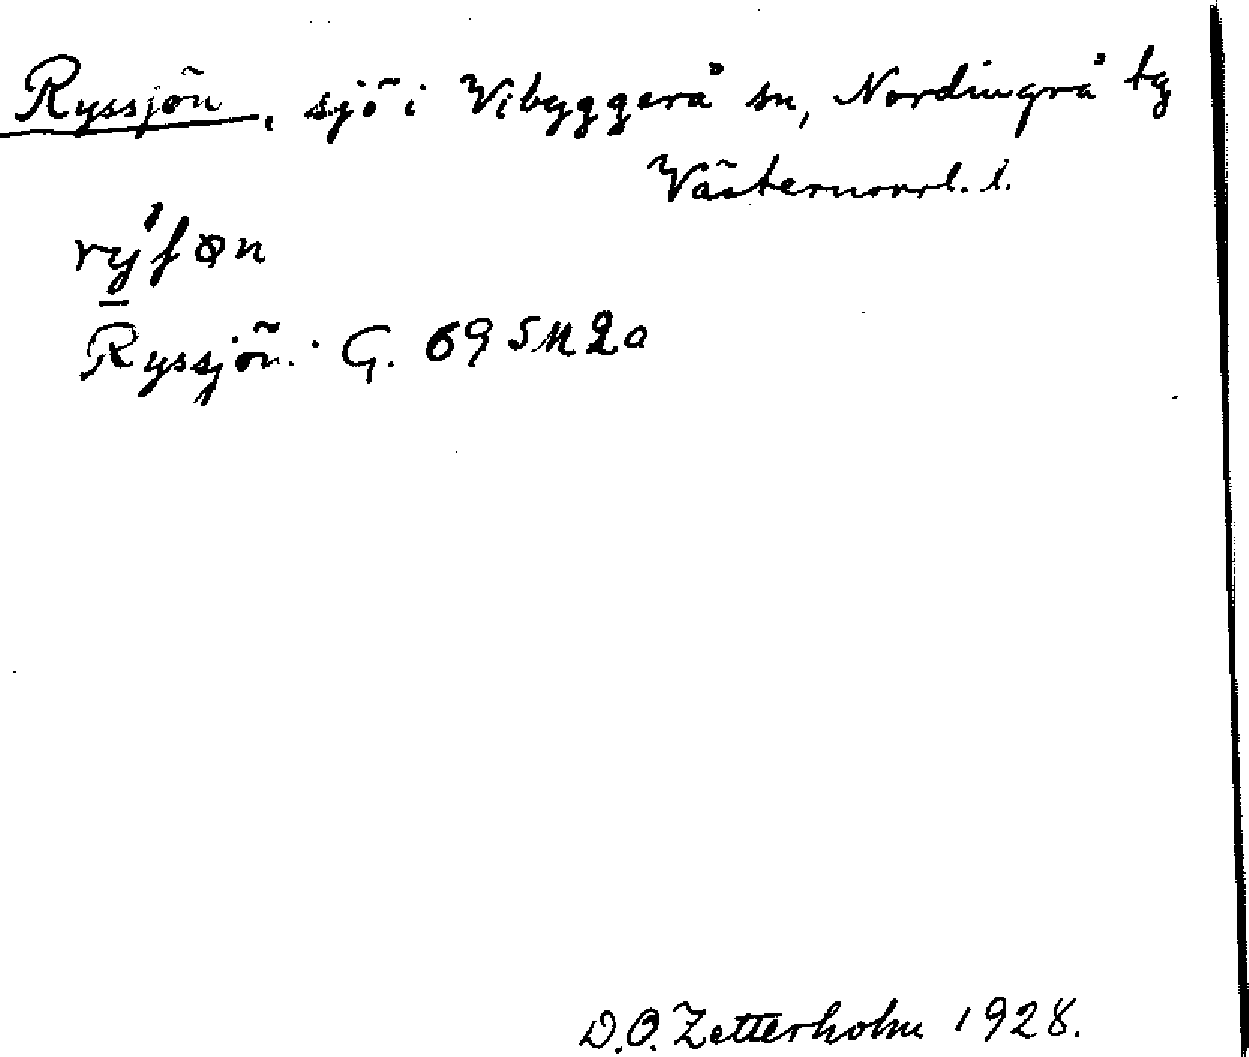 Ryssjön, sjö i Vibyggerå sn, Nordingrå tg
Västernorrl. l.
Ryssjön. G. 69 SM 2a
D.O. Zetterholm 1928.